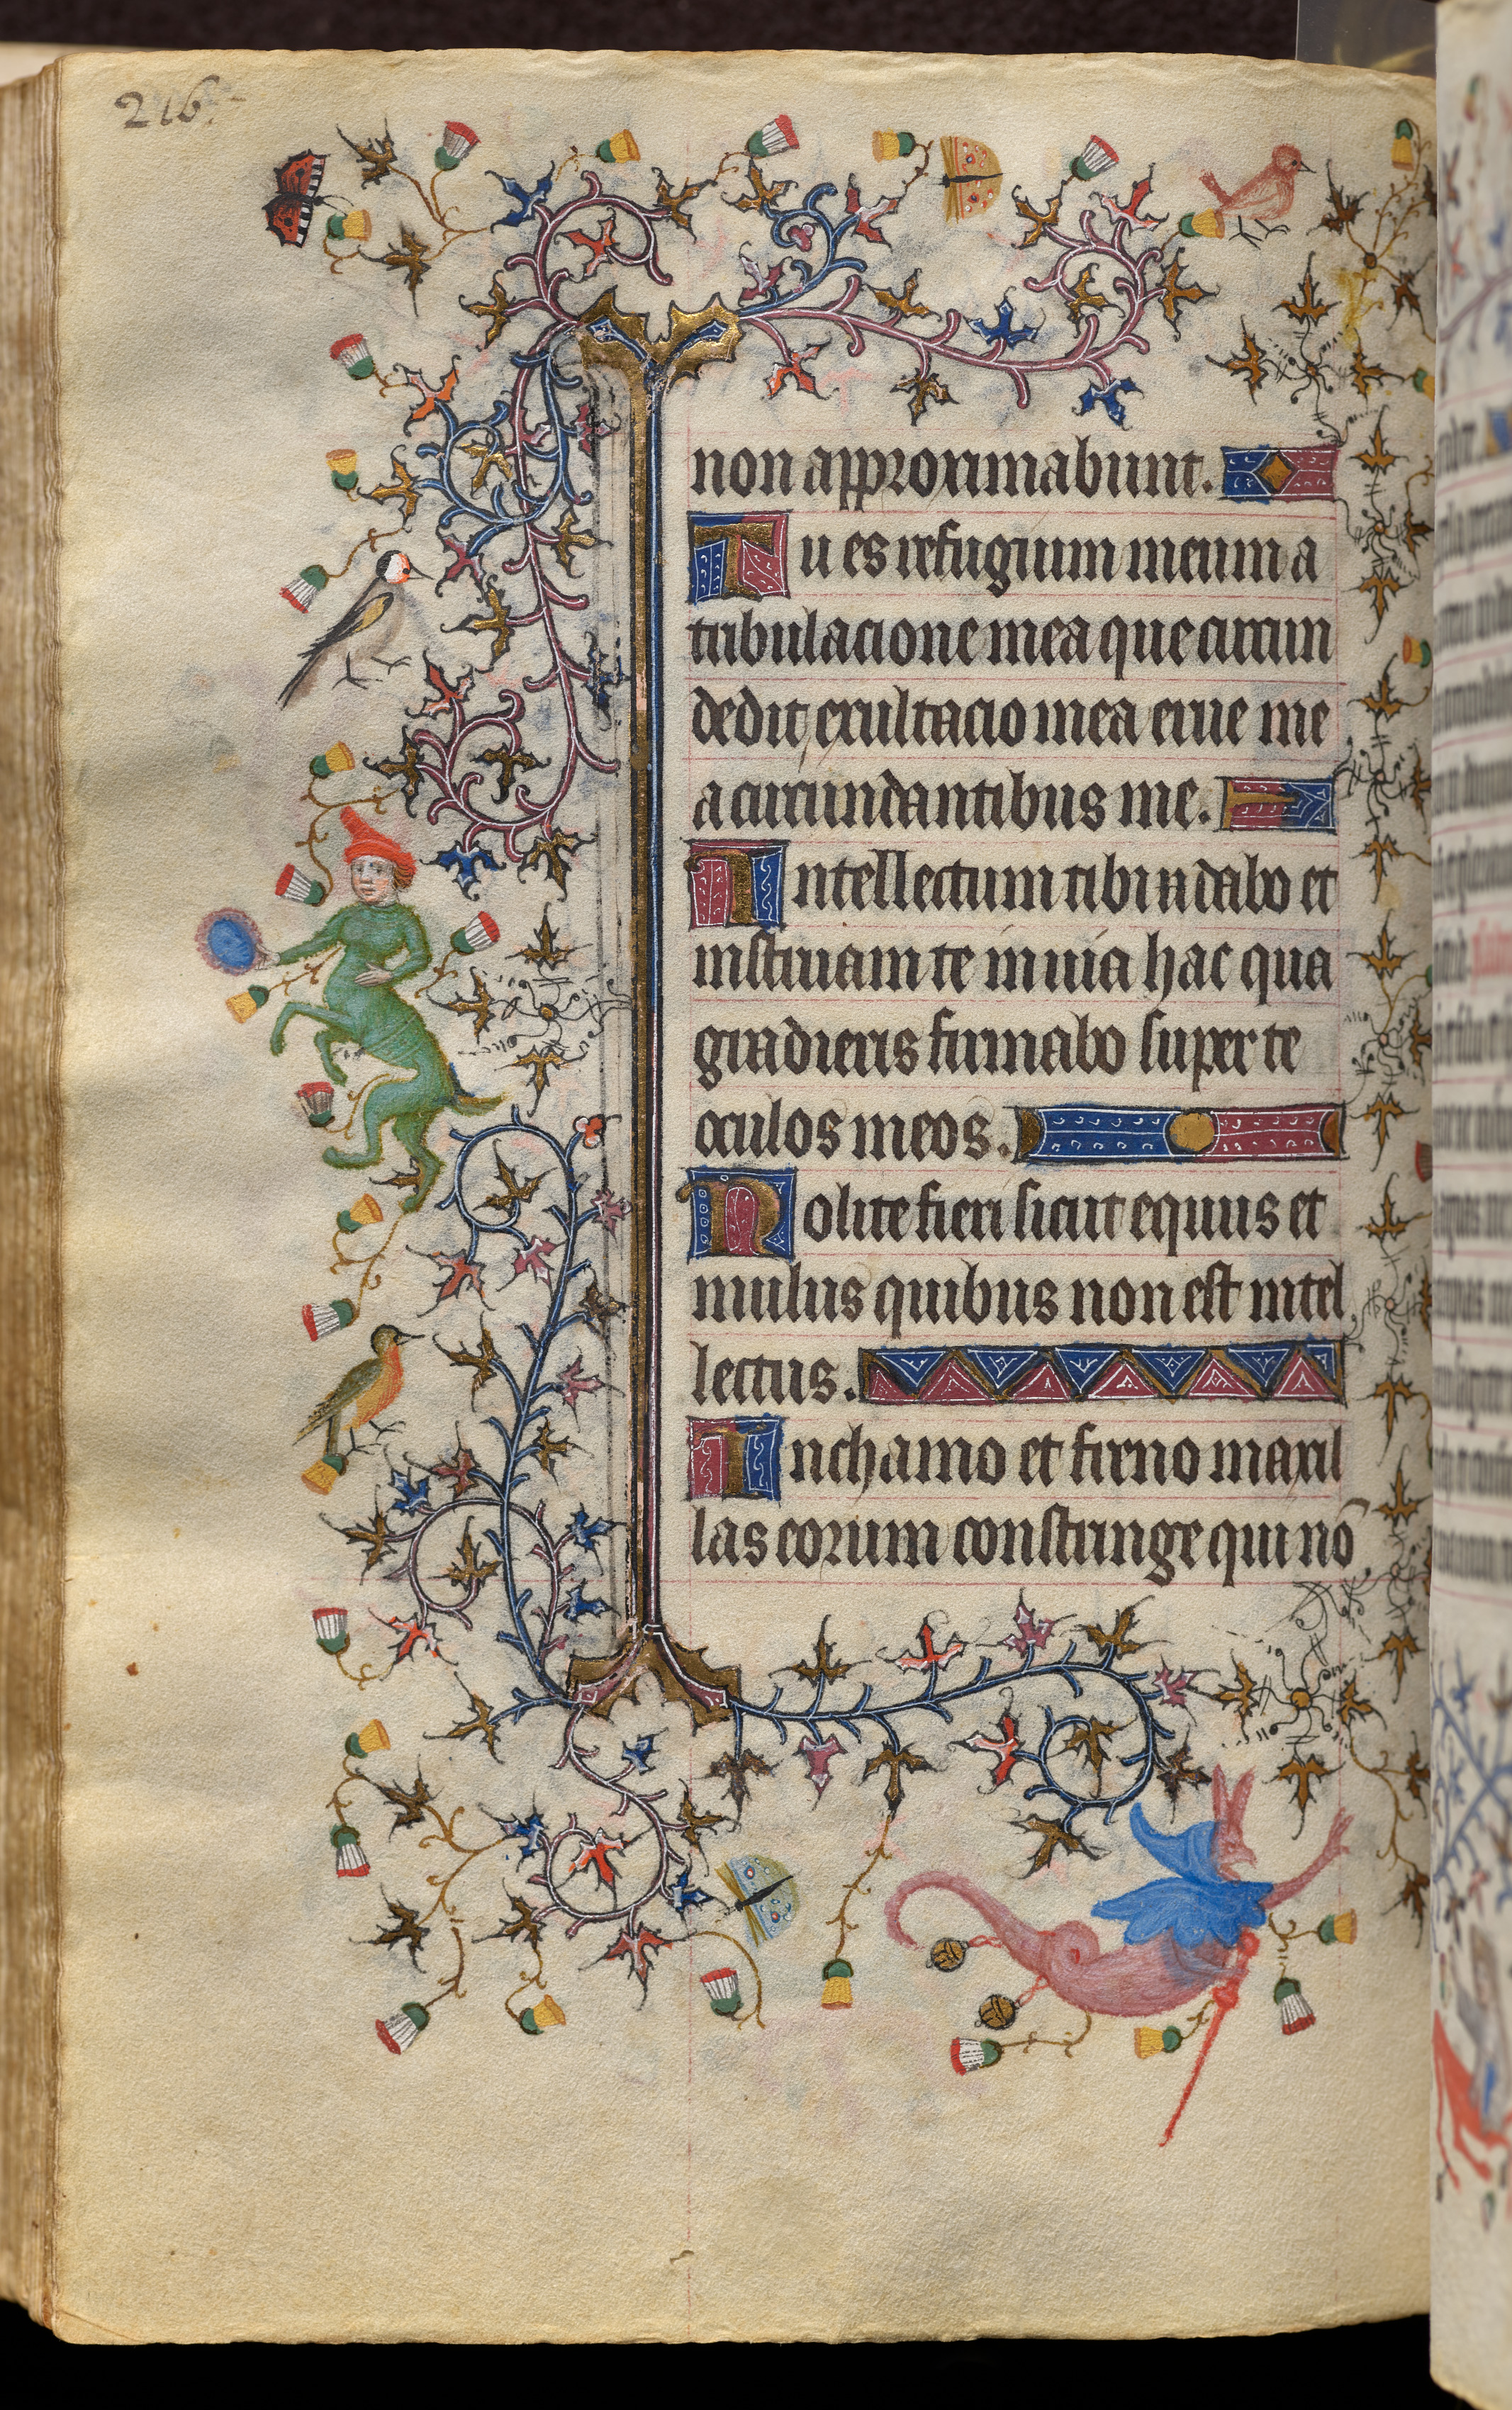 216.
non approximabunt.
Tu es refugium meum a
tribulacione mea que circun
dedit exultacio mea erue me
a circundantibus me.
Intellectum tibi dabo et
instruam te in uia hac qua
gradieris firmabo super te
oculos meos.
Nolite fieri sicut equus et
mulus quibus non est intel
lectus.
In chamo et freno maxil
las eorum constringe qui nō